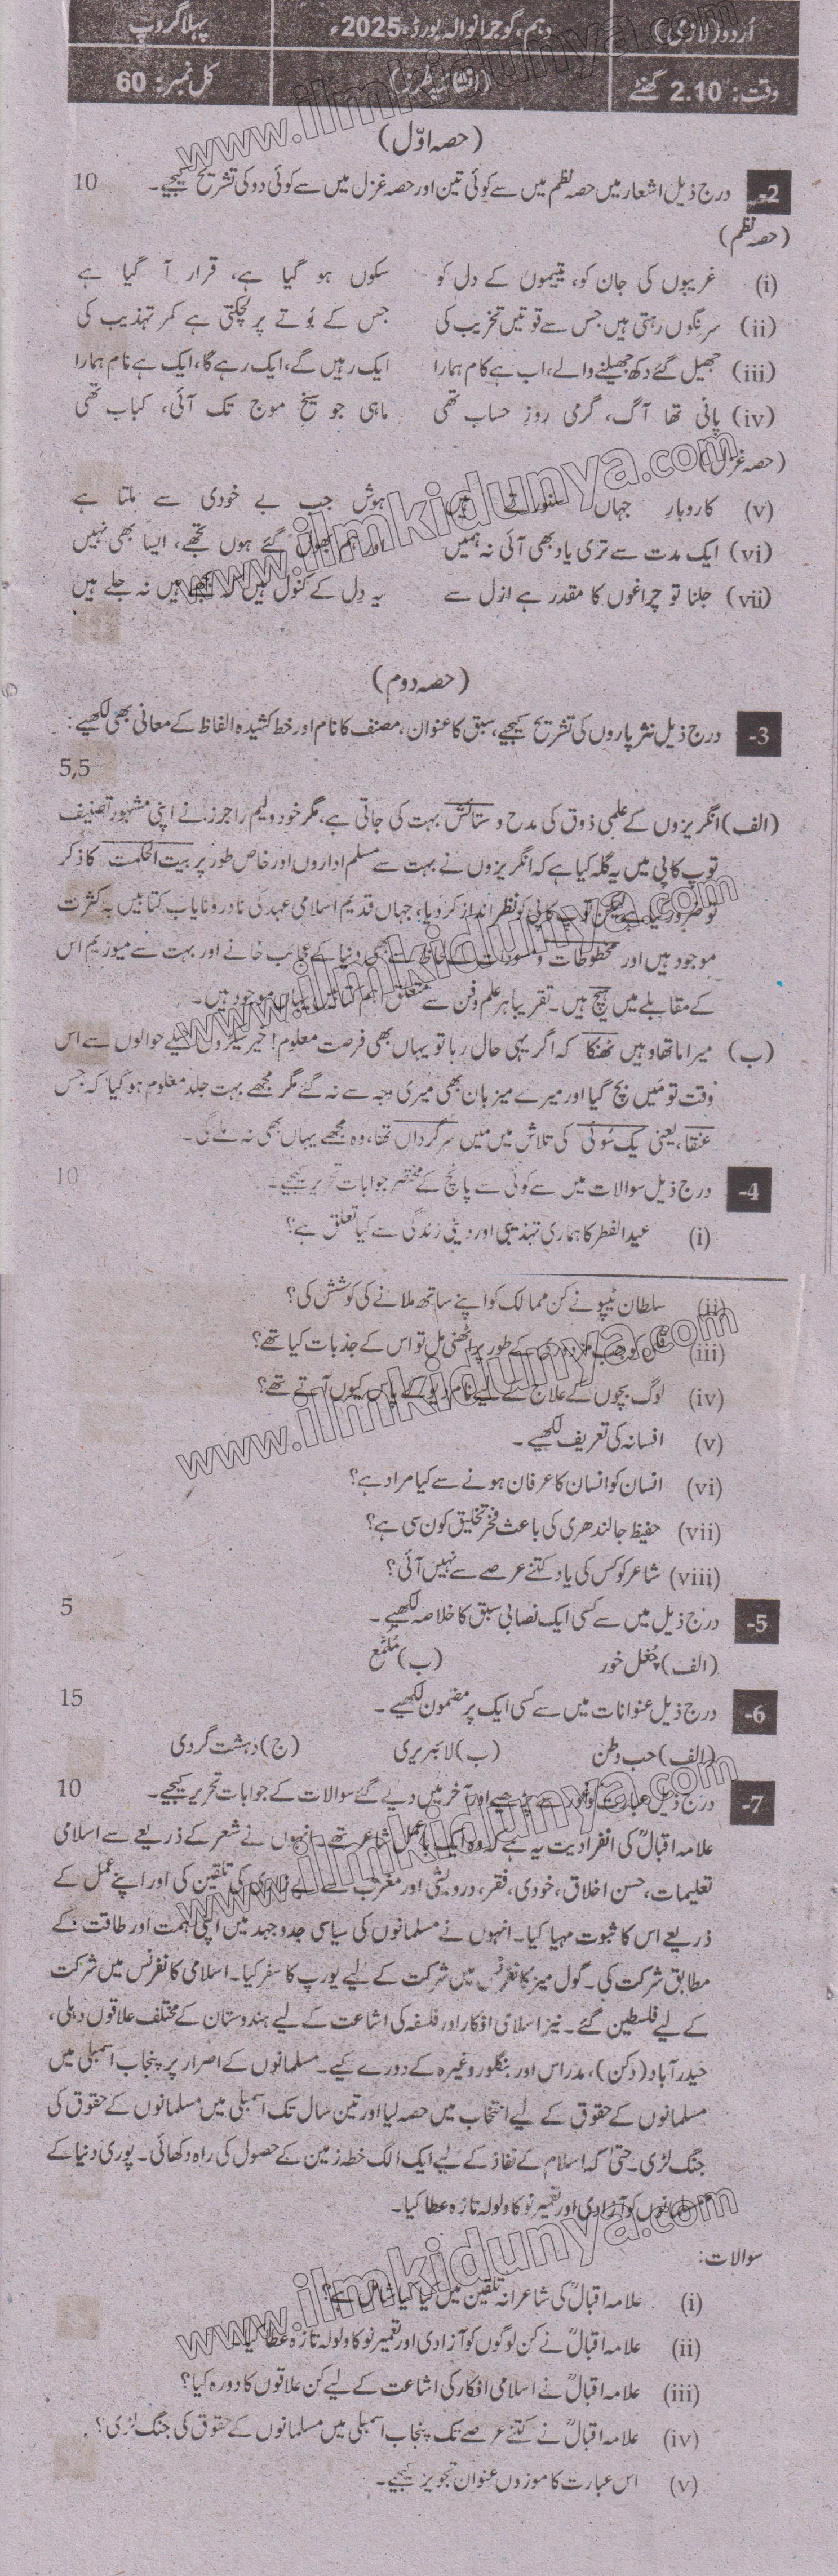 اُردو (لازمی) دہم، گوجرانوالہ بورڈ، 2025ء پہلا گروپ
وقت: 2.10 گھنٹے (انشائیہ طرز) کل نمبر: 60
(حصہ اوّل)
2- درج ذیل اشعار میں حصہ نظم میں سے کوئی تین اور حصہ غزل میں سے کوئی دو کی تشریح کیجیے۔ 10
(حصہ نظم)
(i) غریبوں کی جان کو، یتیموں کے دل کو سکوں ہو گیا ہے، قرار آ گیا ہے
(ii) سرنگوں رہتی ہیں جس سے قوتیں تخریب کی جس کے بُوتے پر لچکتی ہے کمر تہذیب کی
(iii) جھیل گئے دکھ جھیلنے والے، اب ہے کام ہمارا ایک رہیں گے، ایک رہے گا، ایک ہے نام ہمارا
(iv) پانی تھا آگ، گرمی روزِ حساب تھی ماہی جو سیخِ موج تک آئی، کباب تھی
(حصہ غزل)
(v) کاروبارِ جہاں سنورتے ہیں ہوش جب بے خودی سے ملتا ہے
(vi) ایک مدت سے تری یاد بھی آئی نہ ہمیں اور ہم بھول گئے ہوں تجھے، ایسا بھی نہیں
(vii) جلنا تو چراغوں کا مقدر ہے ازل سے یہ دل کے کنول ہیں کہ بجھے ہیں نہ جلے ہیں
(حصہ دوم)
3- درج ذیل نثر پاروں کی تشریح کیجیے، سبق کا عنوان، مصنف کا نام اور خط کشیدہ الفاظ کے معانی بھی لکھیے:
5,5
(الف) انگریزوں کے علمی ذوق کی مدح و ستائش بہت کی جاتی ہے، مگر خود ولیم راجرز نے اپنی مشہور تصنیف
توپ کاپی میں یہ گلہ کیا ہے کہ انگریزوں نے بہت سے مسلم اداروں اور خاص طور پر بیت الحکمت کا ذکر
تو ضرور کیا ہے لیکن توپ کاپی کو نظر انداز کر دیا، جہاں قدیم اسلامی عہد کی نادر و نایاب کتابیں بہ کثرت
موجود ہیں اور مخطوطات و مسودات کے لحاظ سے بھی دنیا کے عجائب خانے اور بہت سے میوزیم اس
کے مقابلے میں ہیچ ہیں۔ تقریباً ہر علم و فن سے متعلق اہم کتابیں یہاں موجود ہیں۔
(ب) میرا ماتھا وہیں ٹھنکا کہ اگر یہی حال رہا تو یہاں بھی فرصت معلوم! خیر سیکڑوں حیلے حوالوں سے اس
وقت تو میں بچ گیا اور میرے میزبان بھی میری وجہ سے نہ گئے مگر مجھے بہت جلد معلوم ہو گیا کہ جس
عنقا، یعنی یک سُوئی کی تلاش میں میں سرگرداں تھا، وہ مجھے یہاں بھی نہ ملے گی۔
4- درج ذیل سوالات میں سے کوئی سے پانچ کے مختصر جوابات تحریر کیجیے۔ 10
(i) عیدالفطر کا ہماری تہذیبی اور دینی زندگی سے کیا تعلق ہے؟
(ii) سلطان ٹیپو نے کن ممالک کو اپنے ساتھ ملانے کی کوشش کی؟
(iii) قلی کو جب مزدوری کے طور پر اٹھنی ملی تو اس کے جذبات کیا تھے؟
(iv) لوگ بچوں کے علاج کے لیے نام دیو کے پاس کیوں آتے تھے؟
(v) افسانہ کی تعریف لکھیے۔
(vi) انسان کو انسان کا عرفان ہونے سے کیا مراد ہے؟
(vii) حفیظ جالندھری کی باعث فخر تخلیق کون سی ہے؟
(viii) شاعر کو کس کی یاد کتنے عرصے سے نہیں آئی؟
5- درج ذیل میں سے کسی ایک نصابی سبق کا خلاصہ لکھیے۔ 5
(الف) چُغل خور (ب) مُلمّع
6- درج ذیل عنوانات میں سے کسی ایک پر مضمون لکھیے۔ 15
(الف) حب وطن (ب) لائبریری (ج) دہشت گردی
7- درج ذیل عبارت کو غور سے پڑھیے اور آخر میں دیے گئے سوالات کے جوابات تحریر کیجیے۔ 10
علامہ اقبالؒ کی انفرادیت یہ ہے کہ وہ ایک باعمل شاعر تھے۔ انہوں نے شعر کے ذریعے سے اسلامی
تعلیمات، حسن اخلاق، خودی، فقر، درویشی اور مغرب سے بے زاری کی تلقین کی اور اپنے عمل کے
ذریعے اس کا ثبوت مہیا کیا۔ انہوں نے مسلمانوں کی سیاسی جدوجہد میں اپنی ہمت اور طاقت کے
مطابق شرکت کی۔ گول میز کانفرنس میں شرکت کے لیے یورپ کا سفر کیا۔ اسلامی کانفرنس میں شرکت
کے لیے فلسطین گئے۔ نیز اسلامی افکار اور فلسفہ کی اشاعت کے لیے ہندوستان کے مختلف علاقوں دہلی،
حیدرآباد (دکن)، مدراس اور بنگلور وغیرہ کے دورے کیے۔ مسلمانوں کے اصرار پر پنجاب اسمبلی میں
مسلمانوں کے حقوق کے لیے انتخاب میں حصہ لیا اور تین سال تک اسمبلی میں مسلمانوں کے حقوق کی
جنگ لڑی۔ حتیٰ کہ اسلام کے نفاذ کے لیے ایک الگ خطہ زمین کے حصول کی راہ دکھائی۔ پوری دنیا کے
مسلمانوں کو آزادی اور تعمیرِ نو کا ولولہ تازہ عطا کیا۔
سوالات:
(i) علامہ اقبالؒ کی شاعرانہ تلقین میں کیا کیا شامل ہے؟
(ii) علامہ اقبالؒ نے کن لوگوں کو آزادی اور تعمیرِ نو کا ولولہ تازہ عطا کیا؟
(iii) علامہ اقبالؒ نے اسلامی افکار کی اشاعت کے لیے کن علاقوں کا دورہ کیا؟
(iv) علامہ اقبالؒ نے کتنے عرصے تک پنجاب اسمبلی میں مسلمانوں کے حقوق کی جنگ لڑی؟
(v) اس عبارت کا موزوں عنوان تجویز کیجیے۔
www.ilmkidunya.com
www.ilmkidunya.com
www.ilmkidunya.com
www.ilmkidunya.com
www.ilmkidunya.com
www.ilmkidunya.com